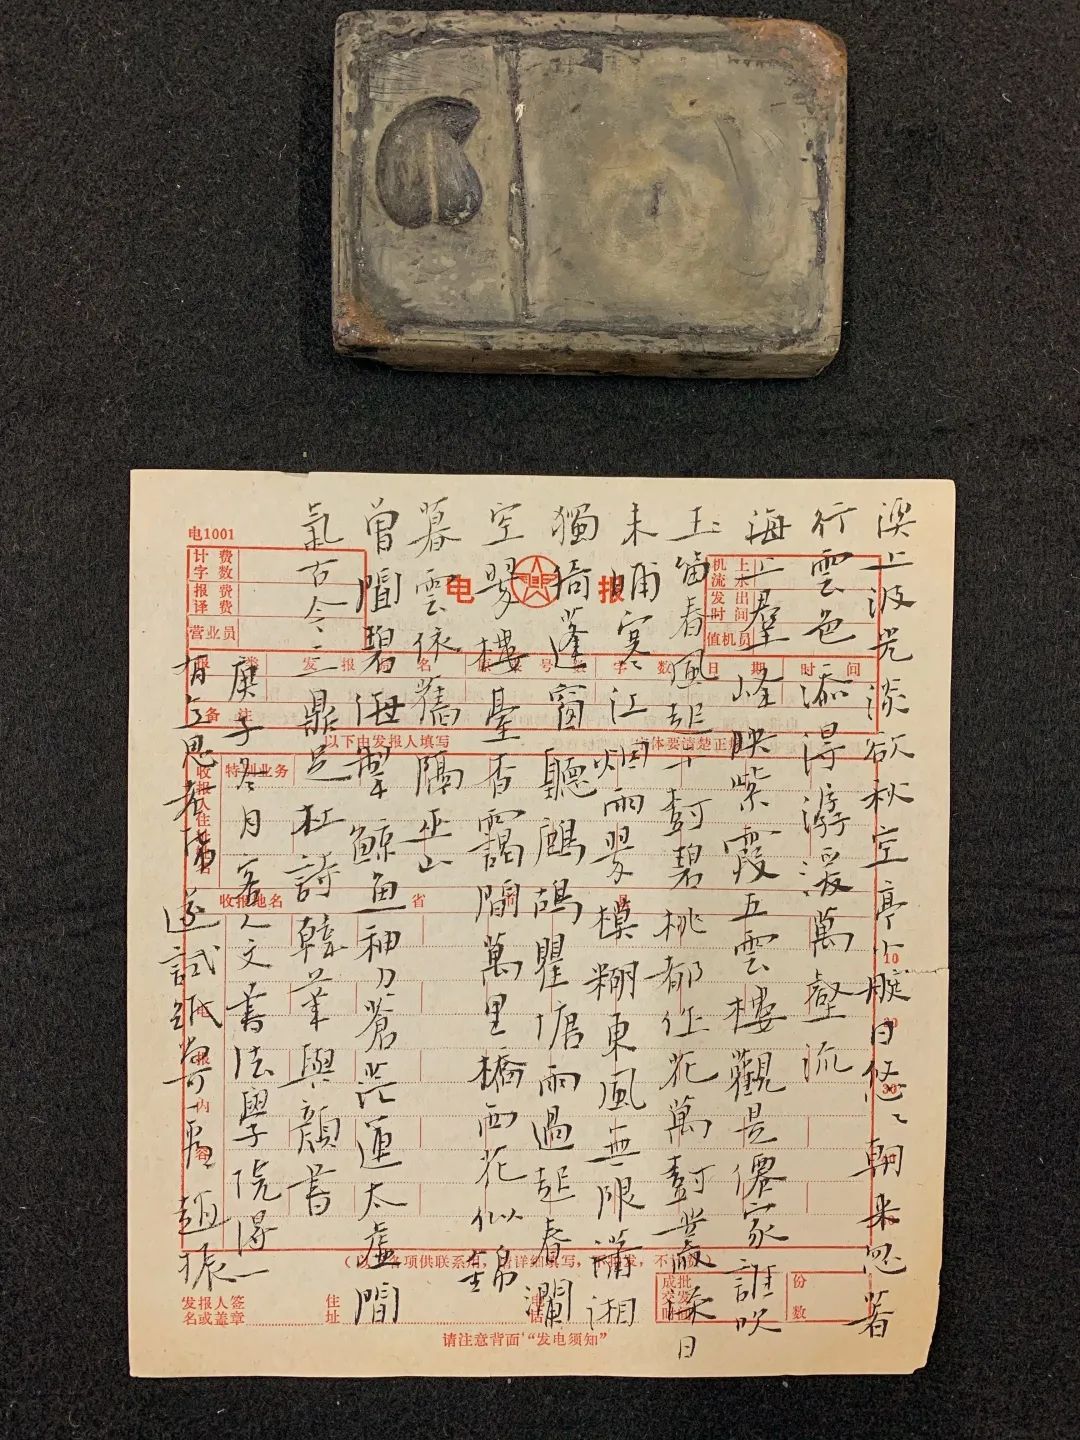 溪上波光淡欲秋空亭小艇日悠々朝来忽著
行雲色添得潺湲萬壑流
海上羣峰映紫霞五雲樓觀是僊家誰吹
玉笛春風起千樹碧桃都作花萬樹叢深日
未晡寒江烟雨翠模糊東風無限瀟湘
獨倚蓬窗聽鷓鴣瞿塘雨過起春瀾
空翠樓臺香靄間萬里橋西花似
暮雲依舊隔巫山
曾聞碧海掣鯨魚神力蒼茫運太虛間
氣古今三鼎足杜詩韓筆與顏書
庚子冬月客人文書法學院得一
遂試 趙振
电1001
计费字数
报费译费
营业员
电报
机上流水
发出时间
值机员
报类 发报局名 号 字数 日期 时间
备注
以下由发报人填写
特别业务
收报人住址姓名
收报地名 省
电报内容
10
20
30
发报人签名或盖章
住址
电话
份数
请注意背面“发电须知”